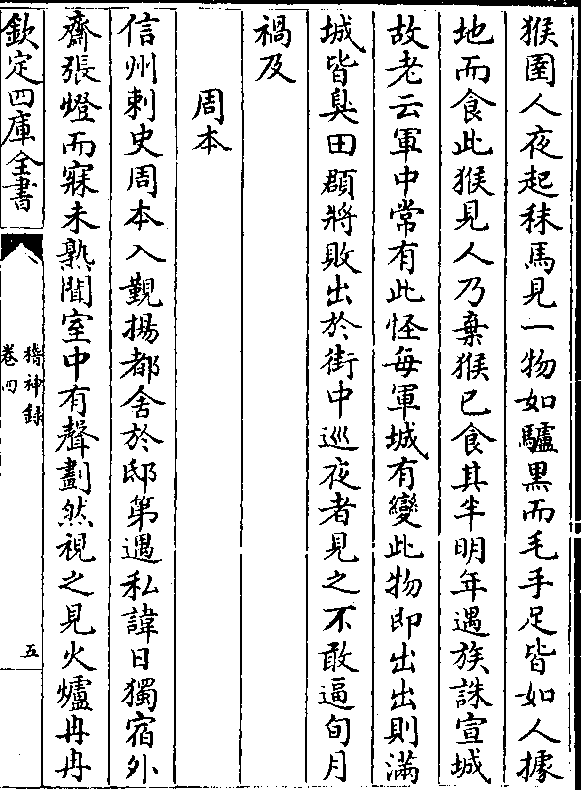 猴圉人夜起秣馬見一物如驢黒而毛手足皆如人據
地而食此猴見人乃棄猴已食其半明年遇族誅宣城
故老云軍中常有此怪每軍城有變此物即出出則滿
城皆臭田頵將敗出於街中巡夜者見之不敢逼旬月
禍及
周本
信州刺史周本入覲揚都舍於邸第遇私諱日獨宿外
齋張燈而寐未熟聞室中有聲劃然視之見火爐冉冉
欽定四庫全書
稽神録
卷四
五